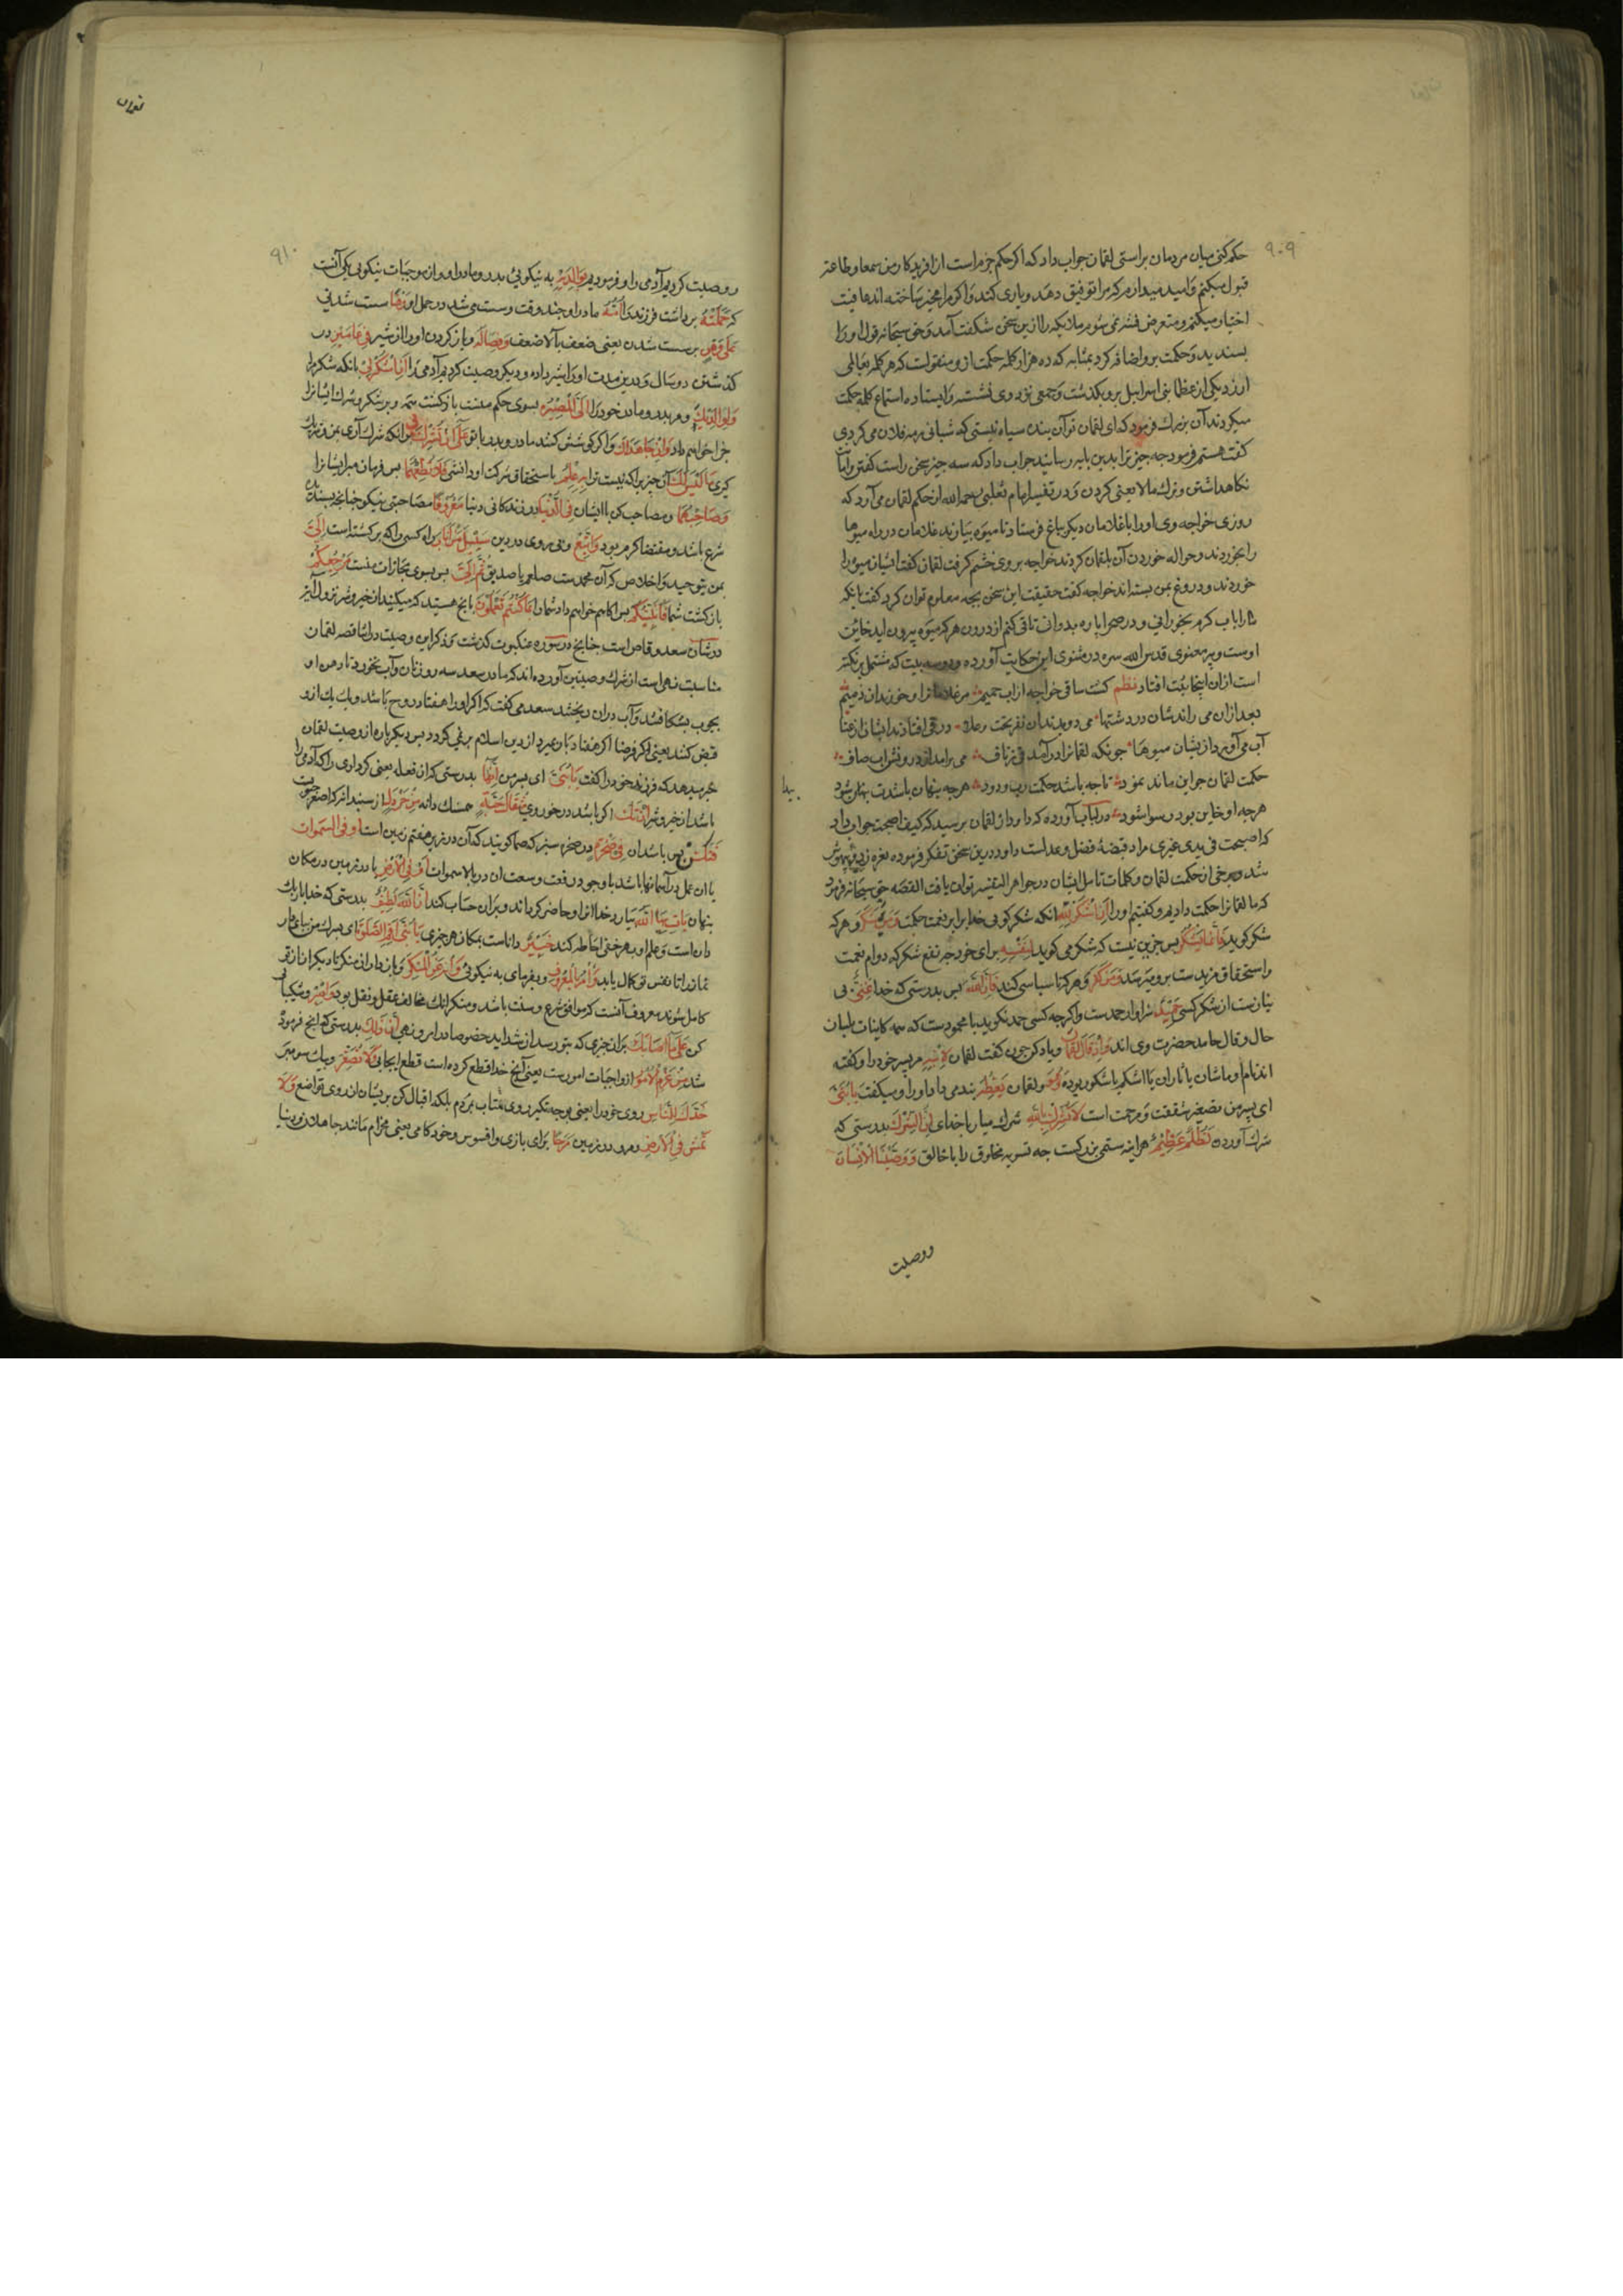 ۹۰۹
حکم کنی میان مردمان براستی لقمان جواب داد که اکر حکم جزم است از افریدکار من سمعا و طاعة
قبول میکنم و امید میدارم که مرا توفیق دهد و یاری کند و اکر مرا مخیر ساخته اند عافیت
اختیار میکنم و متعرض فتنه نمی شوم ملائکه را ازین سخن شکفت آمد و حق سبحانه قول او را
بسندید و حکمت برو اضافه کرد بمثابه که ده هزار کلمه حکمت ازو منقولست که هر کلمه بعالمی
ارزد یکی از عظما بنی اسرایل برو بکذشت و جمعی نزد وی نشسته و ایستاده استماع کلمه حکمت
میکردند آن بزرك فرمود که ای لقمان تو آن بنده سیاه نیستی که شبانی رمه فلان می کردی
کفت هستم فرمود چه چیز ترا بدین پایه رسانید جواب داد که سه چیز سخن راست کفتن و امانت
نکاهداشتن و ترك مالا یعنی کردن و در تفسیر امام ثعلبی رحمه الله از حکم لقمان می آورد که
روزی خواجه وی او را با غلامان دیکر بباغ فرستاد تا میوه بیاورند غلامان در راه میوها
را بخوردند و حواله خوردن آن بلقمان کردند خواجه بر وی خشم کرفت لقمان کفت ایشان میوه را
خوردند و دروغ بمن بسته اند خواجه کفت حقیقت این سخن بچه معلوم توان کرد کفت بانکه
ما را باب کرم بخورانی و در صحرا پاره بدوانی تا قی کنم از درون هر که میوه بیرون آید خاین
اوست و پیر معنوی قدس الله سره در مثنوی این حکایت آورده و دو سه بیت که مشتمل بر نکته
است از ان اینجا ثبت افتاد نظم کشت ساقی خواجه از اب حمیم مر غلامانرا و خوردند آن ز بیم
بعد از ان می راندشان در دشتها می دویدندان نفر تحت و علا در قی افتادند ایشان از عنا
آب می آورد از یشان میوها چونکه لقمانرا در آمد قی زناف می برآمد از درونش اب صاف
حکمت لقمان چو این ماند نمود تا چه باشد حکمت رب ودود هرچه پنهان باشدت پیدا شود
هرچه او خاین بود رسوا شود در لباب آورده که داود از لقمان برسید که کیف اصبحت جواب داد
که اصبحت فی یدی غیری مراد قبضهٔ فضل و عدلست داود درین سخن تفکر فرموده نعره زد و بیهوش
شد و برخی از حکمت لقمان و کلمات تامل ایشان در جواهر التفسیر توان یافت القصه حق سبحانه فرمود
که ما لقمانرا حکمت دادیم و کفتیم او را أَنِ اشْكُرْ لِلَّهِ آنکه شکر کوی خدایرا بر نعمت حکمت وَمَنْ يَشْكُرْ و هر که
شکر کوید فَإِنَّمَا يَشْكُرُ بس جزین نیست که شکر می کوید لِنَفْسِهِ برای خود چه نفع شکر که دوام نعمت
و استحقاق مزیدست برو میرسد وَمَنْ كَفَرَ و هر که ناسپاسی کند فَإِنَّ اللَّهَ بس بدرستی که خدا غَنِيٌّ بی
نیازست از شکر کسی حَمِيدٌ سزاوار حمدست و اکرچه کسی حمد نکوید یا محمودست که همه کاینات بلسان
حال و قال حامد حضرت وی اند وَإِذْ قَالَ لُقْمَانُ و یاد کن چون کفت لقمان لِابْنِهِ مر پسر خود را و کفته
اند نام او ماشان یا تاران یا اشکم یا شکور بوده وَهُوَ و لقمان يَعِظُهُ بند می داد او را و میکفت يَا بُنَيَّ
ای بسر من تصغیر شفقت و مرحمت است لَا تُشْرِكْ بِاللَّهِ شرك میار با خدای إِنَّ الشِّرْكَ بدرستی که
شرك آوردن لَظُلْمٌ عَظِيمٌ هر اینه ستمی بزرکست چه تسویه مخلوق را با خالق وَوَصَّيْنَا الْإِنسَانَ
ووصیت
پیدا
۹۱۰
ووصیت کردیم آدمی را و فرمودیم بِوَالِدَيْهِ به نیکویی بدر و مادر او و از موجبات نیکویی یکی آنست
که حَمَلَتْهُ برداشت فرزند را أُمُّهُ مادر او چند وقت و سست می شد در حمل او وَهْنًا سست شدنی
عَلَى وَهْنٍ بر سست شدن یعنی ضعف بالا ضعف وَفِصَالُهُ و باز کردن او را از شیر فِي عَامَيْنِ در
کذشتن دو سال و درین مدت او را شیر داده و دیکر وصیت کردیم آدمی را أَنِ اشْكُرْ لِي بانکه شکر مرا
وَلِوَالِدَيْكَ و مر بدر و مادر خود را إِلَيَّ الْمَصِيرُ بسوی حکم منست بازکشت همه و بر شکر و شرك ایشانرا
جزا خواهم داد وَإِنْ جَاهَدَاكَ و اکر کوشش کنند مادر و بدر با تو عَلَى أَنْ تُشْرِكَ بِي بر آنکه شرك آری بمن و شریك
کیری مَا لَيْسَ لَكَ آن چیزیرا که نیست ترا بِهِ عِلْمٌ باستحقاق شرکت او دانشی فَلَا تُطِعْهُمَا بس فرمان مبر ایشانرا
وَصَاحِبْهُمَا و مصاحب کن با ایشان فِي الدُّنْيَا در زندکانی دنیا مَعْرُوفًا مصاحبتی نیکو چنانچه بسندیده
شرع باشد و مقتضا کرم بود وَاتَّبِعْ و پی روی در دین سَبِيلَ مَنْ أَنَابَ راه کسی را که برکشته است إِلَيَّ
بمن بتوحید و اخلاص که آن محمدست صلعم یا صدیق ثُمَّ إِلَيَّ بس بسوی مجازات منست مَرْجِعُكُمْ
بازکشت شما فَأُنَبِّئُكُمْ بس اکاهم خواهم داد شما را بِمَا كُنتُمْ تَعْمَلُونَ بانچ هستید که میکنید از خیر و شر نزول آیت
در شان سعد وقاص است چنانچ در سوره عنکبوت کذشت و ذکر این وصیت در اثنا قصه لقمان
مناسبت نهی است از شرك و صیتین آورده اند که مادر سعد سه روز نان و آب نخورد تا دهن او
بچوب بشکافتند و آب دران ریختند سعد می کفت که اکر او را هفتاد روح باشد و یك یك ازو
قبض کنند یعنی اکر فرضا اکر هفتاد بار بمیرد از دین اسلام برنمی کردد بس دیکر باره از وصیت لقمان
خبر میدهد که فرزند خود را کفت يَا بُنَيَّ ای بسر من إِنَّهَا بدرستی که ان فعله یعنی کرداری را که آدمی را
باشد از خیر و شر إِنْ تَكُ اکر باشد در خوردی مِثْقَالَ حَبَّةٍ همسنك دانه مِنْ خَرْدَلٍ از سپندان که اصغر حبوبست
فَتَكُنْ بس باشد ان فِي صَخْرَةٍ در صخره سبز که صما کویند که آن در زیر هفتم زمین است أَوْ فِي السَّمَاوَاتِ
یا ان عمل در آسمانها باشد با وجود رفعت و وسعت ان در بالا سموات أَوْ فِي الْأَرْضِ یا در زمین در مکان
پنهان يَأْتِ بِهَا اللَّهُ بیارد خدا انرا و حاضر کرداند و بر ان حساب کند إِنَّ اللَّهَ لَطِيفٌ بدرستی که خدا باریك
دان است و علم او بهر خفی احاطه کند خَبِيرٌ داناست بمکان هر چیزی يَا بُنَيَّ أَقِمِ الصَّلَوٰةَ ای بسرك من بپای دار
نماز را تا نفس تو کمال یابد وَأْمُرْ بِالْمَعْرُوفِ و بفرمای به نیکویی وَانْهَ عَنِ الْمُنْكَرِ و باز دار از منکر تا دیکران از تو
کامل شوند معروف آنست که موافق شرع و سنت باشد و منکر انك مخالف عقل و نقل بود وَاصْبِرْ و شکیبایی
کن عَلَى مَا أَصَابَكَ بر ان چیزی که بتو رسد از شداید خصوصا در امر و نهی إِنَّ ذَلِكَ بدرستی که انچ فرموده
شد مِنْ عَزْمِ الْأُمُورِ از واجبات امورست یعنی آنچ خدا قطع کرده است قطع ایجابی وَلَا تُصَعِّرْ و یك سو مبر
خَدَّكَ لِلنَّاسِ روی خود را یعنی بوجه تکبر روی متاب از مردم بلکه اقبال کن بر یشان از روی تواضع وَلَا
تَمْشِ فِي الْأَرْضِ و مرو در زمین مَرَحًا برای بازی و افسوس و خودکامی یعنی مخرام مانند جاهلان و دنیا